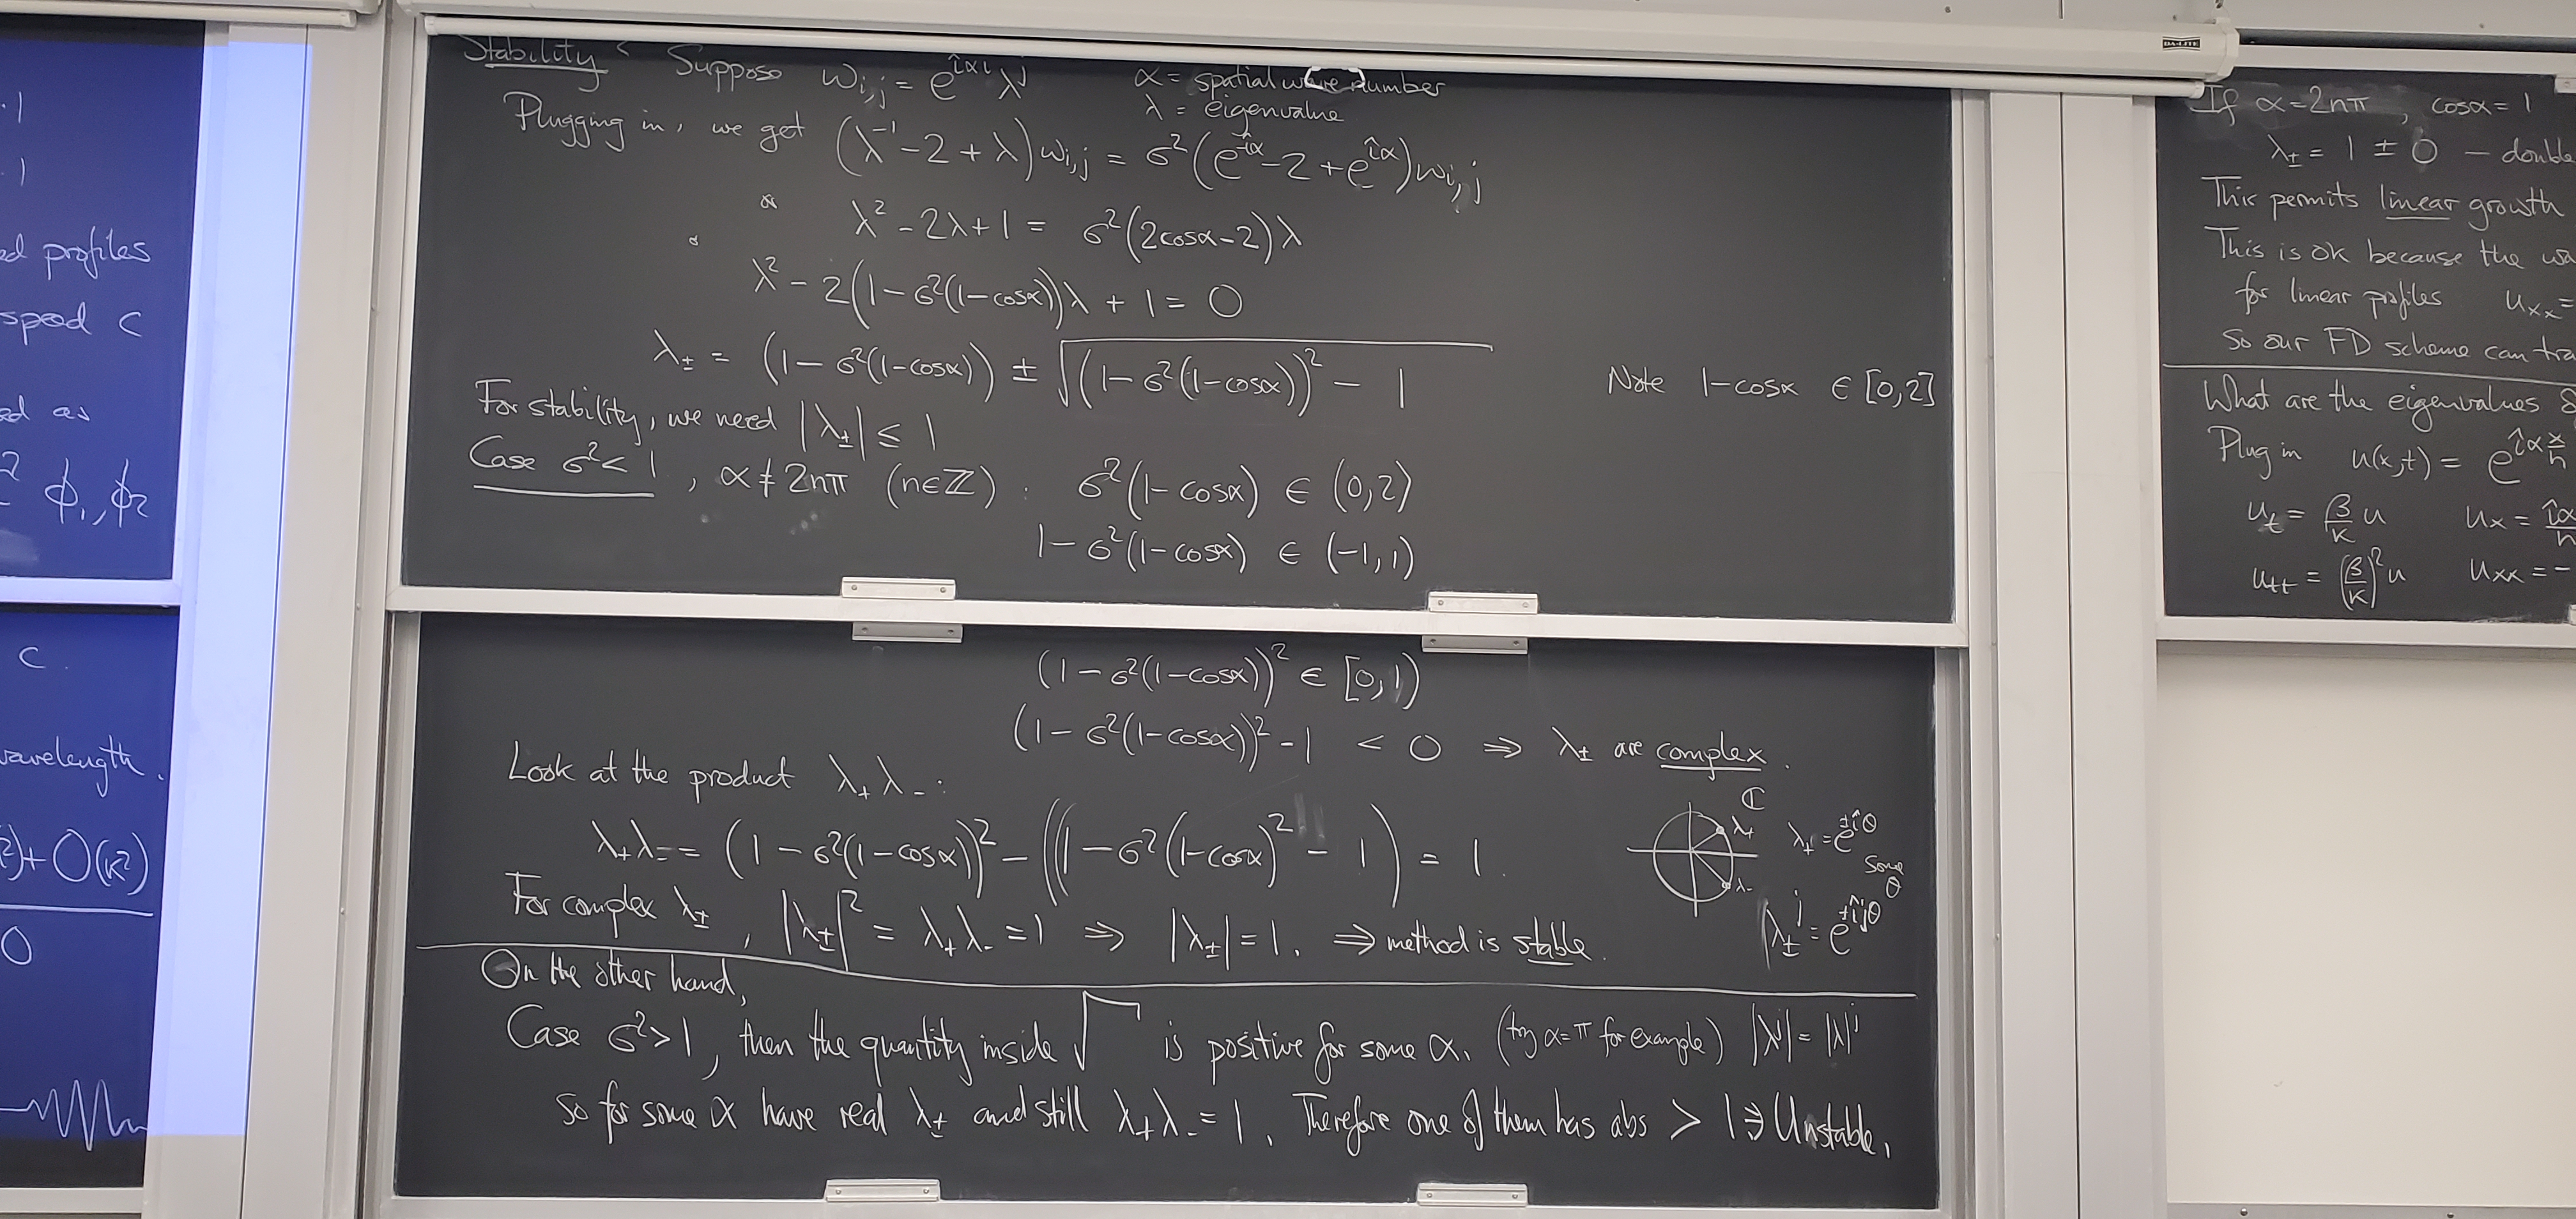 Stability : Suppose w_{i,j} = e^{îαi} λ^j α = spatial wave number
λ = eigenvalue
Plugging in, we get (λ^{-1} - 2 + λ) w_{i,j} = σ²(e^{-îα} - 2 + e^{îα}) w_{i,j}
λ² - 2λ + 1 = σ²(2cosα - 2)λ
λ² - 2(1 - σ²(1-cosα))λ + 1 = 0
λ± = (1 - σ²(1-cosα)) ± √((1 - σ²(1-cosα))² - 1)
Note 1-cosα ∈ [0,2]
For stability, we need |λ±| ≤ 1
Case σ² < 1, α ≠ 2nπ (n∈ℤ) : σ²(1-cosα) ∈ (0,2)
1 - σ²(1-cosα) ∈ (-1,1)
(1 - σ²(1-cosα))² ∈ [0,1)
(1 - σ²(1-cosα))² - 1 < 0 ⇒ λ± are complex.
Look at the product λ₊λ₋ :
λ₊λ₋ = (1 - σ²(1-cosα))² - ((1 - σ²(1-cosα)² - 1) = 1.
ℂ
λ₊
λ₋
λ± = e^{±îθ}
some
θ
For complex λ±, |λ±|² = λ₊λ₋ = 1 ⇒ |λ±| = 1. ⇒ method is stable.
λ±^j = e^{±îjθ}
On the other hand,
Case σ² > 1, then the quantity inside √ is positive for some α. (try α=π for example) |λ^j| = |λ|^j
So for some α have real λ± and still λ₊λ₋ = 1. Therefore one of them has abs > 1 ⇒ Unstable.
If α = 2nπ, cosα = 1
λ± = 1 ± 0 – double
This permits linear growth
This is ok because the wa
for linear profiles u_xx =
So our FD scheme can tra
What are the eigenvalues
Plug in u(x,t) = e^{îα x/h}
u_t = β/k u u_x = îα/h
u_tt = (β/k)² u u_xx = -
ed profiles
speed c
ed as
φ₁, φ₂
c.
wavelength.
²) + O(k²)
0
DA-LITE